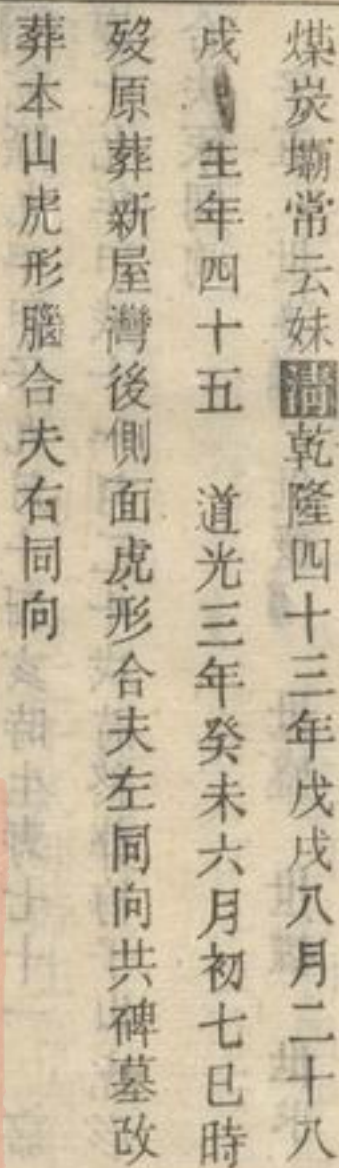 煤炭壩常云妹清乾隆四十三年戊戌八月二十八
戌 生年四十五 道光三年癸未六月初七巳時
歿原葬新屋灣後側面虎形合夫左同向共碑墓改
葬本山虎形腦合夫右同向